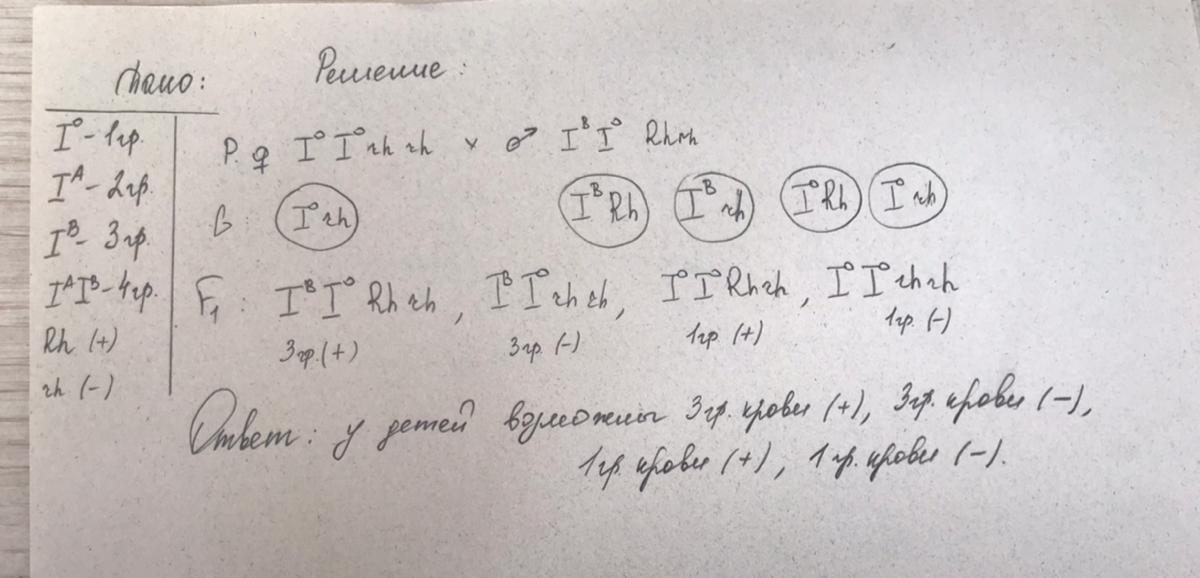 Дано:
Решение:
I⁰ - 1гр.
Iᴬ - 2гр.
Iᴮ - 3гр.
IᴬIᴮ - 4гр.
Rh (+)
rh (-)
P. ♀ I⁰I⁰ rh rh × ♂ IᴮI⁰ Rhrh
G: I⁰rh IᴮRh Iᴮrh I⁰Rh I⁰rh
F₁: IᴮI⁰ Rh rh, IᴮI⁰ rh rh, I⁰I⁰ Rh rh, I⁰I⁰ rh rh
3гр.(+) 3гр. (-) 1гр. (+) 1гр. (-)
Ответ: у детей возможны 3гр. крови (+), 3гр. крови (-),
1гр. крови (+), 1гр. крови (-).